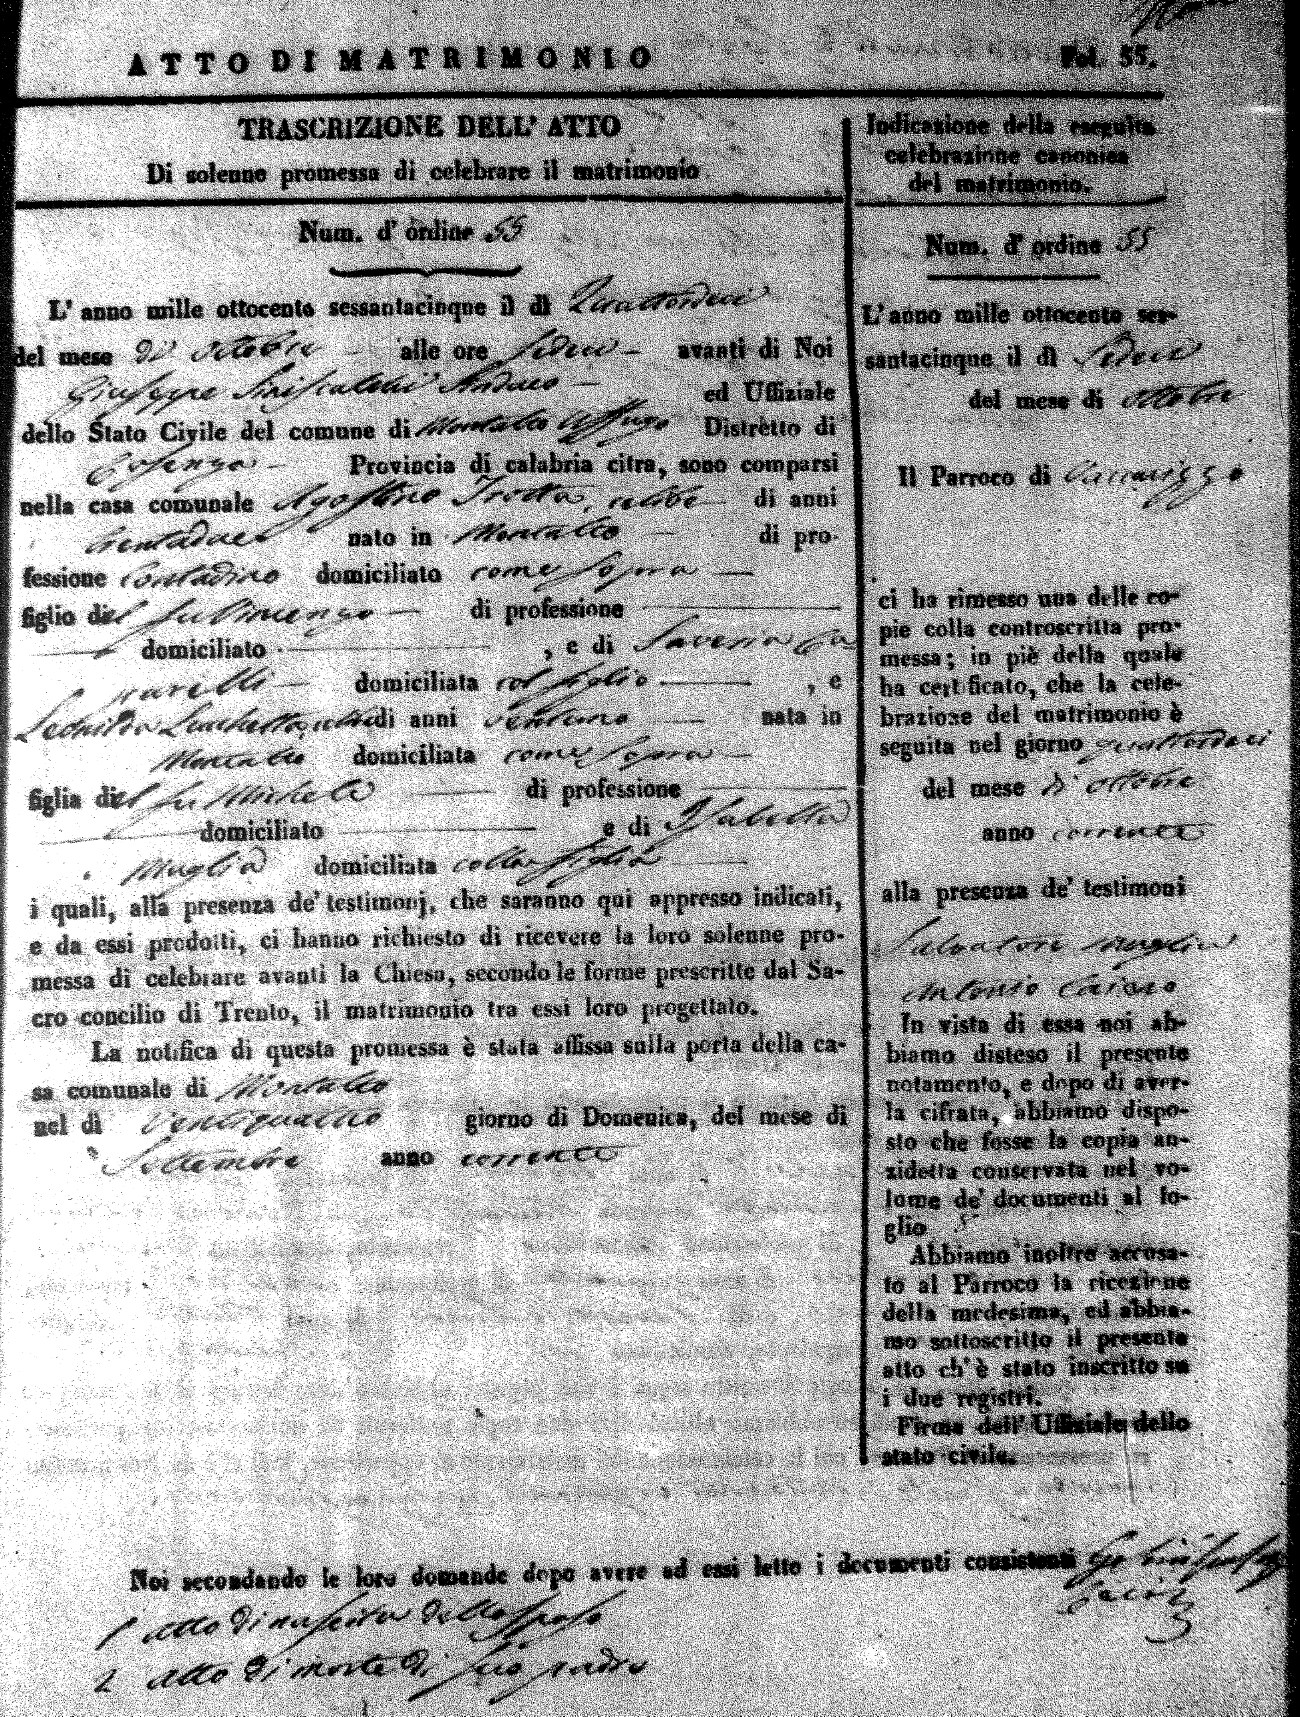 ATTO DI MATRIMONIO Fol. 55.
TRASCRIZIONE DELL' ATTO
Di solenne promessa di celebrare il matrimonio
Num. d' ordine 55
L' anno mille ottocento sessantacinque il dì Quattordici
del mese di ottobre alle ore Sedici avanti di Noi
Giuseppe Siniscalchi Sindaco ed Uffiziale
dello Stato Civile del comune di Montalto Uffugo Distretto di
Cosenza Provincia di calabria citra, sono comparsi
nella casa comunale Agostino Trotta, celibe di anni
trentadue nato in Montalto di pro-
fessione Contadino domiciliato come sopra
figlio del fu di professione
domiciliato , e di Saveria
domiciliata col figlio , e
di anni ventuno nata in
Montalto domiciliata come sopra
figlia del fu Michele di professione
domiciliato e di Isabella
Muglia domiciliata colla figlia
i quali, alla presenza de' testimonj, che saranno qui appresso indicati,
e da essi prodotti, ci hanno richiesto di ricevere la loro solenne pro-
messa di celebrare avanti la Chiesa, secondo le forme prescritte dal Sa-
cro concilio di Trento, il matrimonio tra essi loro progettato.
La notifica di questa promessa è stata affissa sulla porta della ca-
sa comunale di Montalto
nel dì Ventiquattro giorno di Domenica, del mese di
Settembre anno corrente
Indicazione della eseguita
celebrazione canonica
del matrimonio.
Num. d' ordine 55
L' anno mille ottocento ses-
santacinque il dì Sedici
del mese di ottobre
Il Parroco di
ci ha rimesso una delle co-
pie colla controscritta pro-
messa; in piè della quale
ha certificato, che la cele-
brazione del matrimonio è
seguita nel giorno quattordici
del mese di ottobre
anno corrente
alla presenza de' testimoni
Salvatore Muglia
Antonio
In vista di essa noi ab-
biamo disteso il presente
notamento, e dopo di aver-
la cifrata, abbiamo dispo-
sto che fosse la copia an-
zidetta conservata nel vo-
lume de' documenti al fo-
glio
Abbiamo inoltre accusa-
to al Parroco la ricezione
della medesima, ed abbia-
mo sottoscritto il presente
atto ch' è stato inscritto su
i due registri.
Firma dell' Uffiziale dello
stato civile.
Noi secondando le loro domande dopo avere ad essi letto i documenti consistenti
1 Atto di nascita dello sposo
2 Atto di morte di suo padre